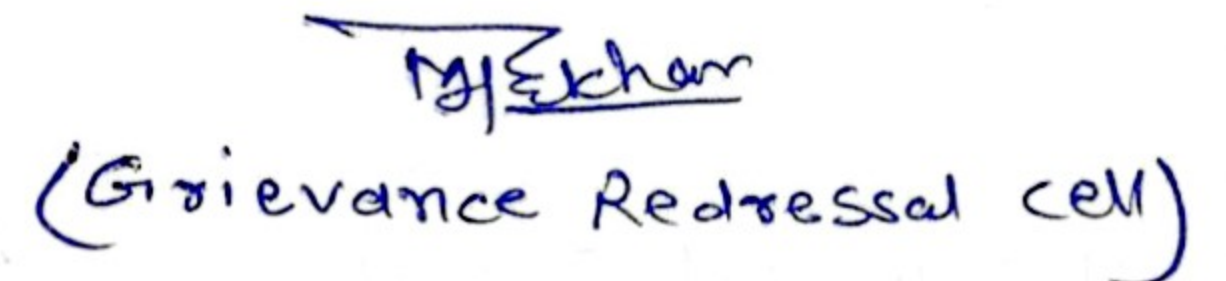 (Grievance Redressal cell)